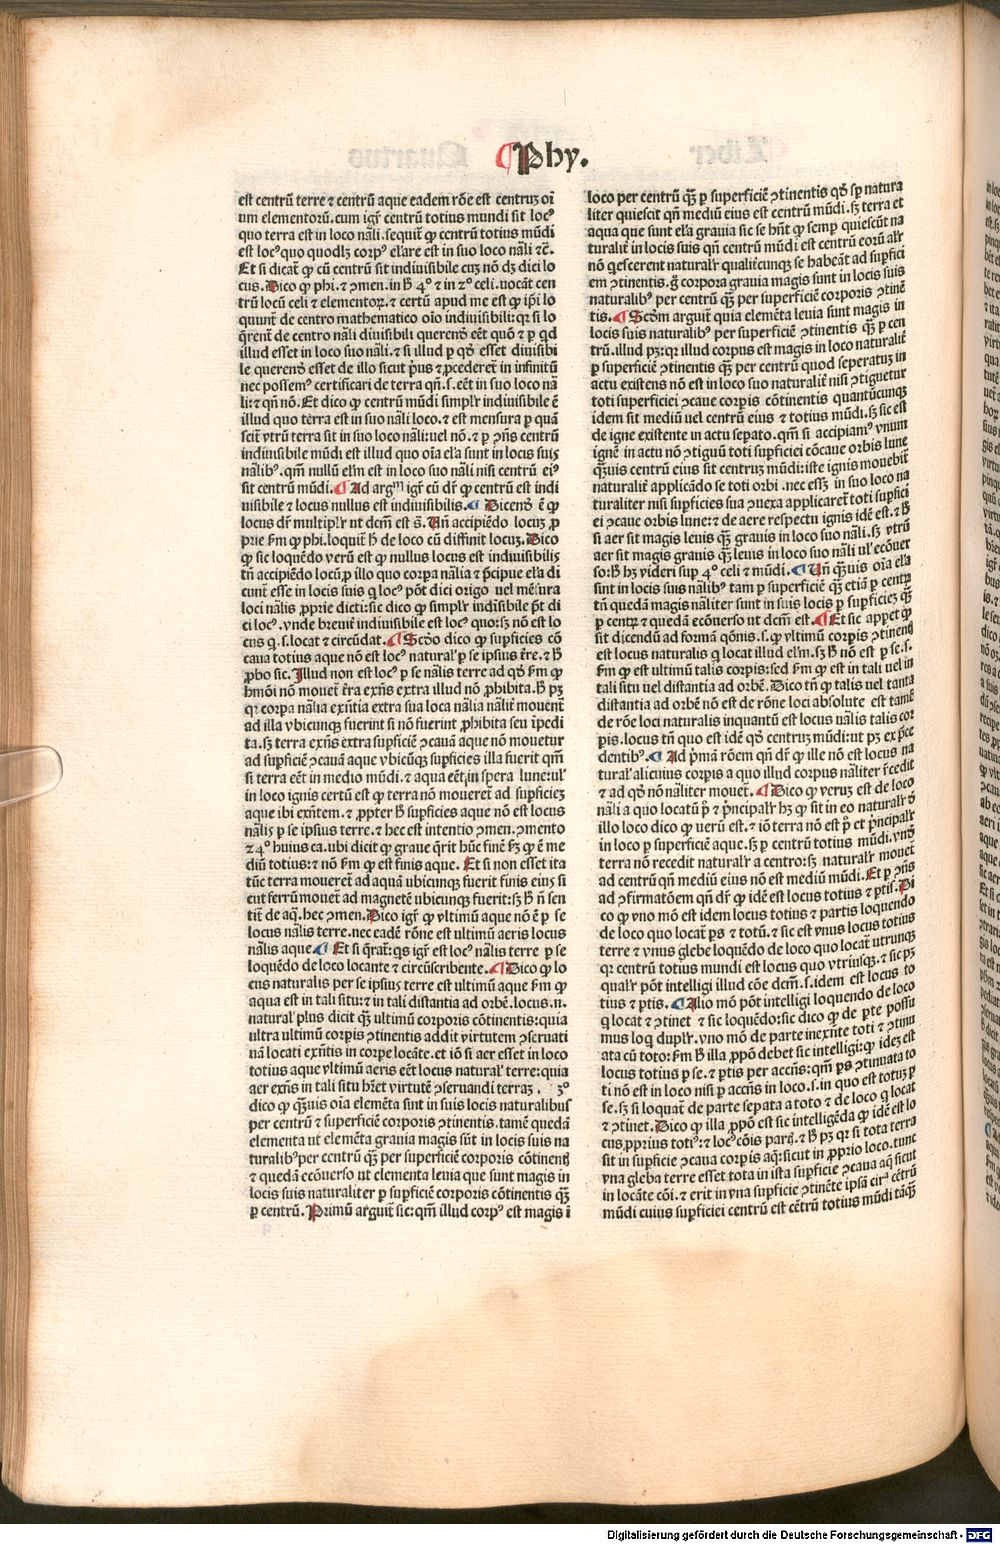 Phy.
est centrū terre ⁊ centrū aque eadem rōe est centruꝫ oī
um elementorū. cum igr̄ centrū totius mundi sit locꝰ
quo terra est in loco nāli. sequit̄ ꝙ centrū totius mūdi
est locꝰ quo quodlꝫ corpꝰ elare est in suo loco nāli ⁊c̄.
Et si dicat̄ ꝙ cū centrū sit indiuisibile cuꝫ nō dꝫ dici lo
cus. Dico ꝙ phi. ⁊ ꝯmen. in h̄ 4° ⁊ in 2° celi. uocāt cen
trū locū celi ⁊ elementoꝝ. ⁊ certū apud me est ꝙ ip̄i lo
quunt̄ de centro mathematico oīo indiuisibili: qꝛ si lo
q̄rent̄ de centro nāli diuisibili querēꝰ eēt quō ⁊ ꝑ qd
illud esset in loco suo nāli. ⁊ si illud ꝑ qō esset diuisibi
le querenꝰ esset de illo sicut p̄us ⁊ ꝓcederet̄ in infinitū
nec possemꝰ certificari de terra qn̄. s. eēt in suo loco nā
li: ⁊ qn̄ nō. Et dico ꝙ centrū mūdi simplr̄ indiuisibile ē
illud quo terra est in suo nāli loco. ⁊ est mensura ꝑ quā
scit̄ vtrū terra sit in suo loco nāli: uel nō. ⁊ ꝑ ꝯn̄s centrū
indiuisibile mūdi est illud quo oīa ela sunt in locis suis
nālibꝰ. qm̄ nullū elm̄ est in loco suo nāli nisi centrū eiꝰ
sit centrū mūdi. ¶ Ad argm̄ igr̄ cū dr̄ ꝙ centrū est indi
uisibile ⁊ locus nullus est indiuisibilis. ¶ Dicenꝰ ē ꝙ
locus dr̄ multiplr̄ ut dcm̄ est s̄. Vn̄ accipiēdo locuꝫ ꝓ
prie fm̄ ꝙ phi. loquit̄ h̄ de loco cū diffinit locuꝫ. Dico
ꝙ sic loquēdo verū est ꝙ nullus locus est indiuisibilis
tn̄ accipiēdo locū ꝓ illo quo corpa nālia ⁊ p̄cipue ela di
cunt̄ esse in locis suis q̄ locꝰ pōt dici origo uel mēsura
loci nālis ꝓprie dicti: sic dico ꝙ simplr̄ indi̅sibile p̄t di
ci locꝰ. vnde breuit̄ indiuisibile est locꝰ quo: sꝫ nō est lo
cus q̄. s. locat ⁊ circūdat. ¶ Scdo dico ꝙ supficies cō
caua totius aque nō est locꝰ natural̄ ꝑ se ipsius t̄re. ⁊ h̄
ꝓbo sic. Illud non est locꝰ ꝑ se nālis terre ad qō fm̄ ꝙ
hm̄oi nō mouet̄ t̄ra exn̄s extra illud nō ꝓhibita. h̄ pꝫ
qꝛ corpa nālia exn̄tia extra sua loca nālia nālit̄ mouent̄
ad illa vbicunqꝫ fuerint si nō fuerint ꝓhibita seu īpedi
ta. sꝫ terra exn̄s extra supficiē ꝯcauā aque nō mouetur
ad supficiē ꝯcauā aque vbicūqꝫ supficies illa fuerit qm̄
si terra eēt in medio mūdi. ⁊ aqua eēt; in spera lune: ul̄
in loco ignis certū est ꝙ terra nō moueret̄ ad supficieꝫ
aque ibi exn̄tem. ⁊ ꝓpter h̄ supficies aque nō est locus
nālis ꝑ se ipsius terre. ⁊ hec est intentio ꝯmen. ꝯmento
24° huius ca. ubi dicit ꝙ graue q̄rit hūc finē fꝫ ꝙ ē me
diū totius: ⁊ nō fm̄ ꝙ est finis aque. Et si non esset ita
tūc terra moueret̄ ad aquā ubicunqꝫ fuerit finis eiꝰ; si
cut ferrū mouet̄ ad magnetē ubicunqꝫ fuerit: sꝫ h̄ n̄ sen
tit̄ de aq̄. hec ꝯmen. Dico igr̄ ꝙ vltimū aque nō ē ꝑ se
locus nālis terre. nec eadē rōne est ultimū aeris locus
nālis aque ¶ Et si q̄rat̄: qs igr̄ est locꝰ nālis terre ꝑ se
loquēdo de loco locante ⁊ circūscribente. ¶ Dico ꝙ lo
cus naturalis per se ipsius terre est ultimū aque fm̄ ꝙ
aqua est in tali situ: ⁊ in tali distantia ad orbē. locus. n.
natural̄ plus dicit qꝫ̄ ultimū corporis cōtinentis: quia
ultra ultimū corpis ꝯtinentis addit virtutem ꝯseruati
uā locati exn̄tis in corpe locāte. et iō si aer esset in loco
totius aque vltimū aeris eēt locus natural̄ terre: quia
aer exn̄s in tali situ hr̄et virtutē ꝯseruandi terraꝫ. 3°
dico ꝙ qꝫ̄uis oīa elemēta sint in suis locis naturalibus
per centrū ⁊ superficiē corporis ꝯtinentis. tamē quedā
elementa ut elemēta grauia magis sūt in locis suis na
turalibꝰ per centrū qꝫ̄ per superficiē corporis cōtinentꝭ
⁊ quedā ecōuerso ut elementa leuia que sunt magis in
locis suis naturaliter ꝑ supficiē corporis cōtinentis qꝫ̄
ꝑ centrū. Primū arguit̄ sic: qm̄ illud corpꝰ est magis ī
loco per centrū qꝫ̄ ꝑ superficiē ꝯtinentis qō sp̄ natura
liter quiescit qn̄ mediū eius est centrū mūdi. sꝫ terra et
aqua que sunt ela grauia sic se hn̄t ꝙ semꝑ quiescūt na
turalit̄ in locis suis qn̄ centrū mūdi est centrū eorū alr̄
nō q̄escerent naturalr̄ qualit̄cunqꝫ se habeāt ad supfici
em ꝯtinentis. ḡ corpora grauia magis sunt in locis suis
naturalibꝰ per centrū qꝫ̄ per superficiē corporis ꝯtinē
tis. ¶ Scd̄m arguit̄ quia elemēta leuia sunt magis in
locis suis naturalibꝰ per superficiē ꝯtinentis qꝫ̄ ꝑ cen
trū. illud pꝫ: qꝛ illud corpus est magis in loco naturalit̄
ꝑ superficiē ꝯtinentis qꝫ̄ per centrū quod seperatuꝫ in
actu existens nō est in loco suo naturalit̄ nisi ꝯtiguetur
toti superficiei ꝯcaue corpis cōtinentis quantūcunqꝫ
idem sit mediū uel centrū eius ⁊ totius mūdi. sꝫ sic est
de igne existente in actu sepato. qm̄ si accipiamꝰ vnum
ignē in actu nō ꝯtiguū toti supficiei cōcaue orbis lune
qꝫ̄uis centrū eius sit centruꝫ mūdi: iste ignis mouebit̄
naturalit̄ applicādo se toti orbi. nec essꝫ in suo loco na
turaliter nisi supficies sua ꝯuexa applicaret̄ toti supfici
ei ꝯcaue orbis lune: ⁊ de aere respectu ignis idē est. ⁊ h̄
si aer sit magis leuis qꝫ̄ grauis in loco suo nāli. sꝫ vtrū
aer sit magis grauis qꝫ̄ leuis in loco suo nāli ul̄ ecōuer
so: h̄ hꝫ videri sup 4° celi ⁊ mūdi. ¶ Vn̄ qꝫ̄uis oīa ela
sint in locis suis nālibꝰ tam ꝑ superficiē qꝫ̄ etiā ꝑ centꝝ
tn̄ quedā magis nāliter sunt in suis locis ꝑ supficieꝫ qꝫ̄
ꝑ centꝝ ⁊ quedā ecōuerso ut dcm̄ est. ¶ Et sic appet ꝙ
sit dicendū ad formā qōnis. s. ꝙ vltimū corpis ꝯtinentꝭ
est locus naturalis q̄ locat illud elm̄. sꝫ h̄ nō est ꝑ se. s.
fm̄ ꝙ est ultimū talis corpis: sed fm̄ ꝙ est in tali uel in
tali situ uel distantia ad orbē. Dico tn̄ ꝙ talis uel tanta
distantia ad orbē nō est de rōne loci absolute est tamē
de rōe loci naturalis inquantū est locus nālis talis cor
pis. locus tn̄ quo est idē qō centruꝫ mūdi: ut pꝫ ex p̄ce
dentibꝰ. ¶ Ad p̄mā rōem qn̄ dr̄ ꝙ ille nō est locus na
tural̄ alicuius corpis a quo illud corpus nāliter r̄cedit
⁊ ad qō nō nāliter mouet̄. ¶ Dico ꝙ veruꝫ est de loco
nāli a quo locatū p̄ ⁊ p̄ncipalr̄ hꝫ ꝙ sit in eo naturalr̄ d̄
illo loco dico ꝙ uerū est. ⁊ iō terra nō est p̄ et p̄ncipalr̄
in loco ꝑ superficiē aque. sꝫ ꝑ centrū totius mūdi. vnō
terra nō recedit naturalr̄ a centro: sꝫ naturalr̄ mouet̄
ad centrū qn̄ mediū eius nō est mediū mūdi. Et ꝑ ꝯn̄s
ad ꝯfirmatōem qn̄ dr̄ ꝙ idē est locus totius ⁊ ꝑtis. Di
co ꝙ vno mō est idem locus totius ⁊ partis loquendo
de loco quo locat̄ ꝑs ⁊ totū. ⁊ sic est vnus locus totius
terre ⁊ vnus glebe loquēdo de loco quo locat̄ utrunqꝫ
qꝛ centrū totius mundi est locus quo vtriusqꝫ. ⁊ sic pꝫ
qualr̄ pōt intelligi illud cōe dcm̄. s. idem est locus to
tius ⁊ ꝑtis. ¶ Alio mō pōt intelligi loquendo de loco
q̄ locat ⁊ ꝯtinet ⁊ sic loquēdo: sic dico ꝙ de ꝑte possu
mus loq̄ duplr̄. vno mō de parte inexn̄te toti ⁊ ꝯtinu
ata cū toto: fm̄ h̄ illa ꝓpō debet sic intelligi: ꝙ ideꝫ est
locus totius ꝑ se. ⁊ ꝑtis per accn̄s: qm̄ ꝑs ꝯtinuata to
ti nō est in loco nisi ꝑ accn̄s in loco. s. in quo est totuꝫ ꝑ
se. sꝫ si loquat̄ de parte sepata a toto ⁊ de loco q̄ locat
⁊ ꝯtinet. Dico ꝙ illa ꝓpō est sic intelligēda ꝙ idē est lo
cus ꝓprius totiꝰ: ⁊ locꝰ cōis partꝭ. ⁊ h̄ pꝫ qꝛ si tota terra
sit in supficie ꝯcaua corpis aq̄: sicut in ꝓprio loco. tunc
vna gleba terre esset tota in ista supficie ꝯcaua aq̄ sicut
in locāte cōi. ⁊ erit in vna supficie ꝯtinēte ipsā circa cētrū
mūdi cuius superficiei centrū est cētrū totius mūdi tāqꝫ̄
Digitalisierung gefördert durch die Deutsche Forschungsgemeinschaft - DFG